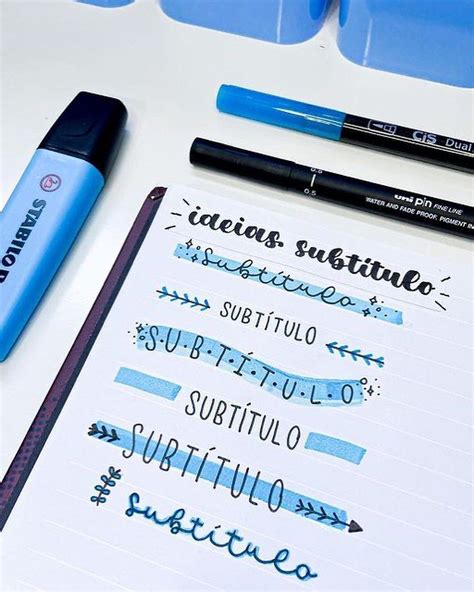 CiS Dual
0.5
0.5
uni pin FINE LINE
WATER AND FADE PROOF, PIGMENT IN
STABILO B
ideias subtítulo
Subtítulo
SUBTÍTULO
S·U·B·T·Í·T·U·L·O
SUBTÍTULO
SUBTÍTULO
Subtítulo